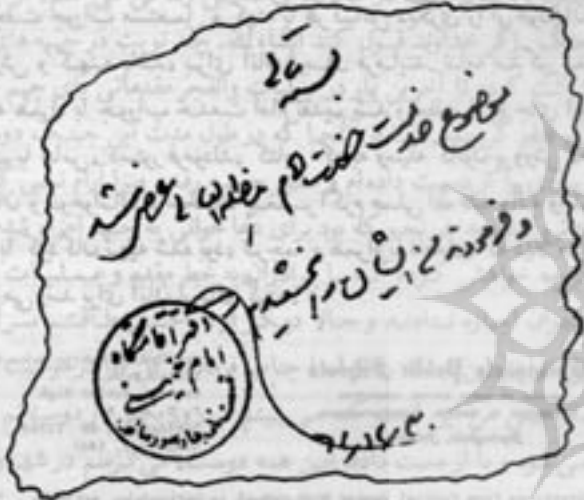 بسمه تعالی
موضوع خدمت حضرت امام مدظله العالی عرض شد
و فرمودند من ایشان را بخشیدم
دفتر اقامتگاه
امام خمینی